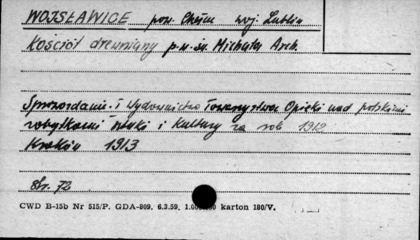 WOJSŁAWICE pow. Chełm woj. Lublin
Kościół drewniany p.w. św. Michała Arch.
Sprawozdanie i Wydawnictwo Towarzystwa Opieki nad polskimi
zabytkami sztuki i kultury za rok 1912
Kraków 1913
Str. 72
CWD B-15b Nr 515/P. GDA-809. 6.3.59. karton 180/V.